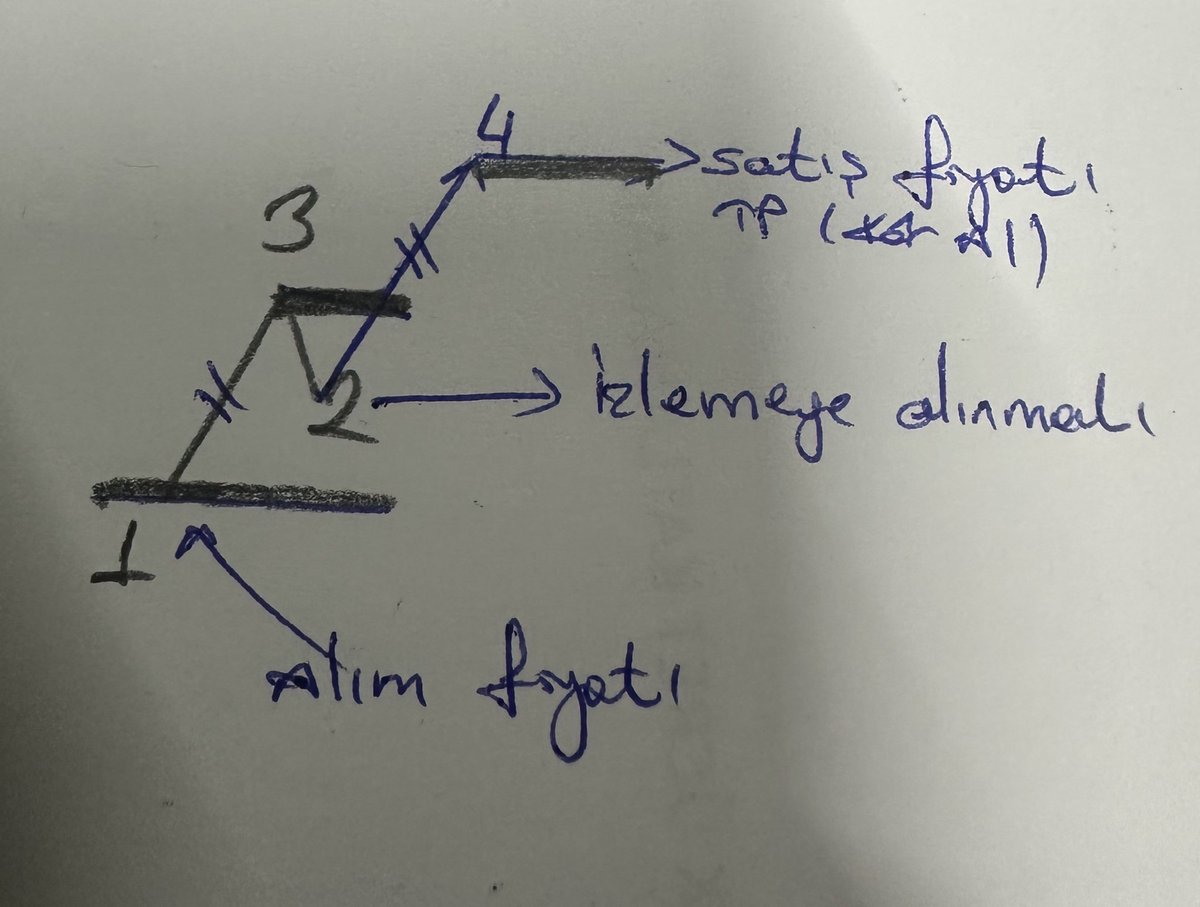 4
satış fiyatı
TP (Kâr Al)
3
2
İzlemeye alınmalı
1
Alım fiyatı